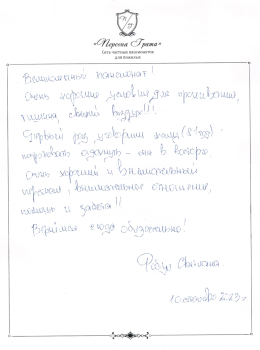 «Персона Грата»
Сеть частных пансионатов
для пожилых
Великолепный пансионат!
Очень хорошие условия для проживания,
тишина, свежий воздух!!!
Первый раз уговорили маму
попробовать отдохнуть - она в восторге.
Очень хороший и внимательный
персонал, внимательное отношение,
помощь и забота!!
Вернёмся сюда обязательно!
Светлана
2023 г.